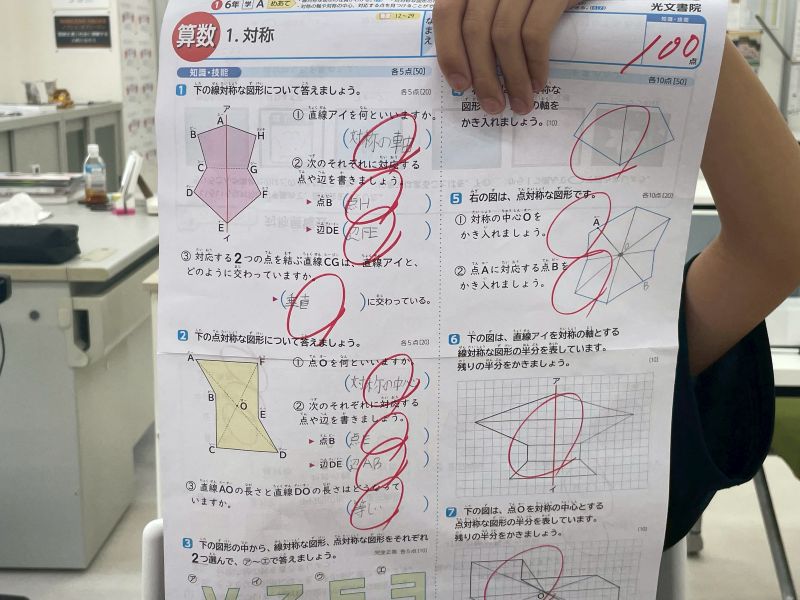 6年 学A めあて
光文書院
算数 1. 対称
なまえ
知識・技能
100点
知識・技能 各5点[50]
各10点[50]
1 下の線対称な図形について答えましょう。 各5点[20]
ア
A
B H
C G
D F
E
イ
① 直線アイを何といいますか。
(対称の軸)
② 次のそれぞれに対応する
点や辺を書きましょう。
▶ 点B (点H)
▶ 辺DE (辺FE)
③ 対応する2つの点を結ぶ直線CGは、直線アイと、
どのように交わっていますか。
▶ (垂直)に交わっている。
2 下の点対称な図形について答えましょう。 各5点[20]
A F
B
O
E
C D
① 点Oを何といいますか。
(対称の中心)
② 次のそれぞれに対応する
点や辺を書きましょう。
▶ 点B (点E)
▶ 辺DE (辺AB)
③ 直線AOの長さと直線DOの長さはどうなって
いますか。
(等しい)
3 下の図形の中から、線対称な図形、点対称な図形をそれぞれ
2つ選んで、ア〜エで答えましょう。 完全正答 各5点[10]
ア イ ウ エ
な
図形 の軸を
かき入れましょう。[10]
5 右の図は、点対称な図形です。 各10点[20]
① 対称の中心Oを
かき入れましょう。
② 点Aに対応する点Bを
かき入れましょう。
A
B
6 下の図は、直線アイを対称の軸とする
線対称な図形の半分を表しています。
残りの半分をかきましょう。 [10]
ア
イ
7 下の図は、点Oを対称の中心とする
点対称な図形の半分を表しています。
残りの半分をかきましょう。 [10]
O